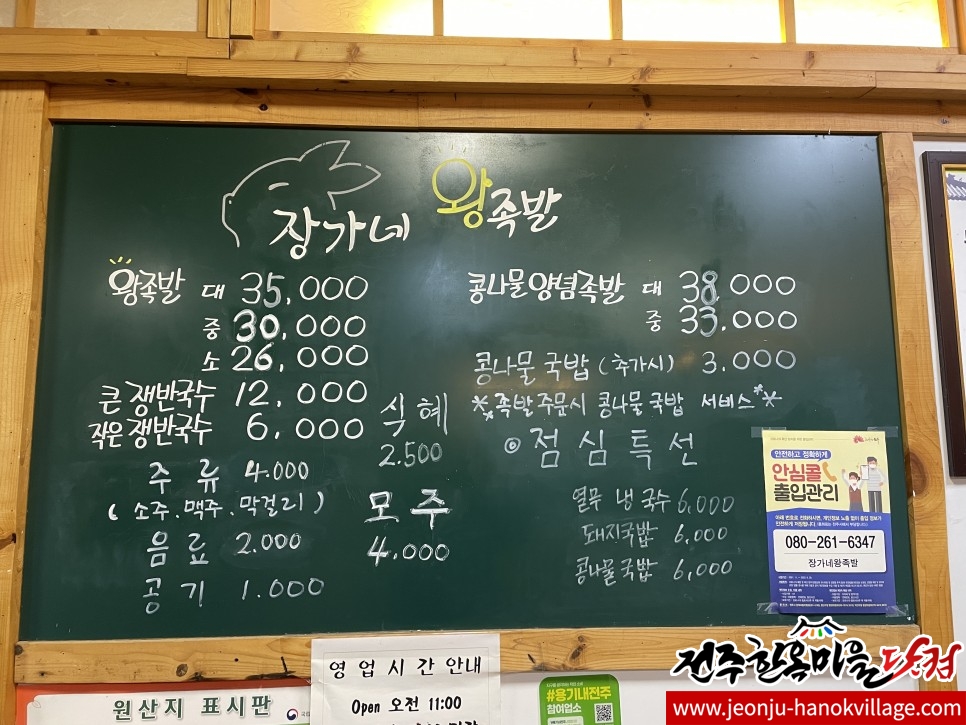 장가네 왕족발
왕족발 대 35,000
중 30,000
소 26,000
큰 쟁반국수 12,000
작은 쟁반국수 6,000
주류 4.000
(소주.맥주.막걸리)
음료 2.000
공기 1.000
식혜
2.500
모주
4.000
콩나물양념족발 대 38,000
중 33.000
콩나물국밥 (추가시) 3.000
※족발주문시 콩나물국밥 서비스※
◎점심특선
열무냉국수 6,000
돼지국밥 6,000
콩나물국밥 6,000
안전하고 정확하게
안심콜
출입관리
080-261-6347
장가네왕족발
영업시간안내
Open 오전 11:00
원산지 표시판
#용기내전주
참여업소
전주한옥마을닷컴
www.jeonju-hanokvillage.com